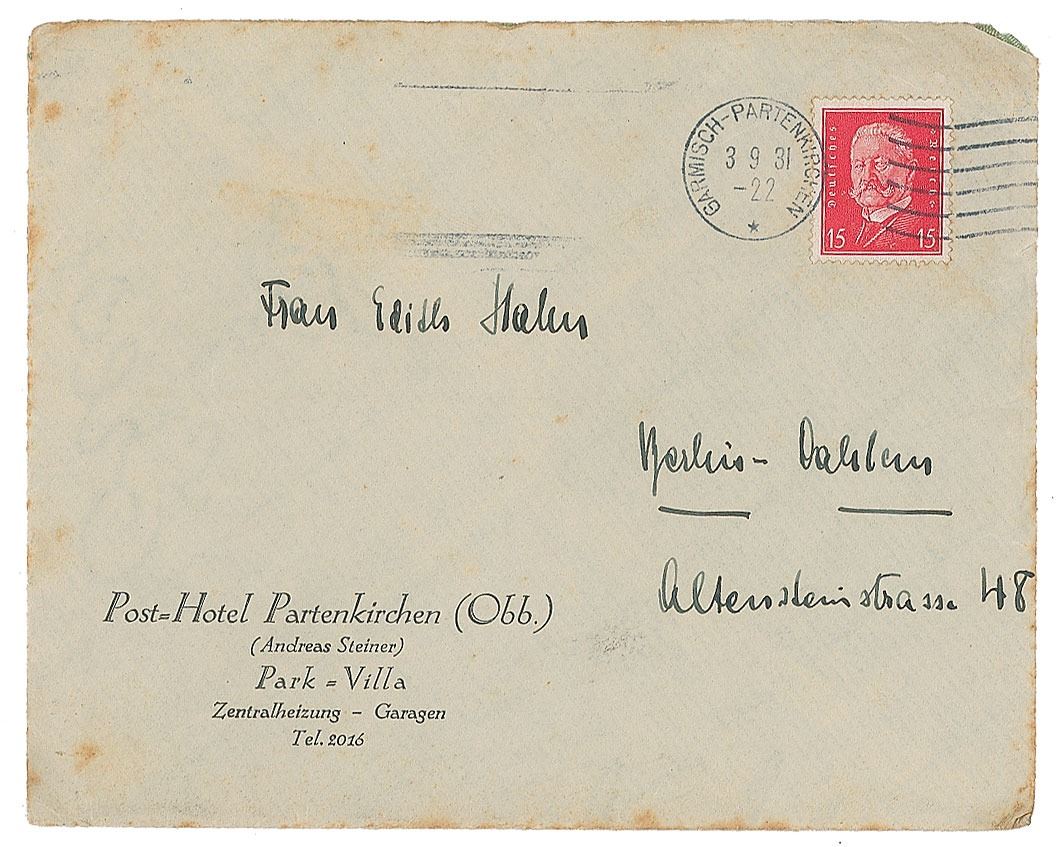 GARMISCH-PARTENKIRCHEN
3 9 31
-22
*
Deutsches Reich
15 15
Frau Edith Hahn
Berlin- Dahlem
Altensteinstrasse 48
Post=Hotel Partenkirchen (Obb.)
(Andreas Steiner)
Park = Villa
Zentralheizung – Garagen
Tel. 2016